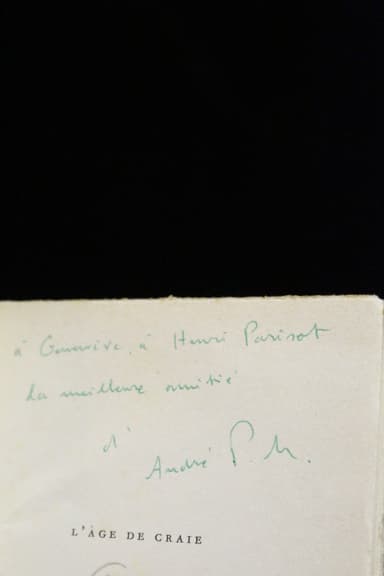 à Geneviève, à Henri Parisot
La meilleure amitié
d'
André P. M.
L'ÂGE DE CRAIE